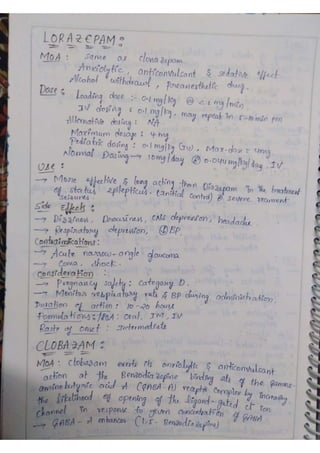 LORAZEPAM :
MOA : Same as clonazepam
Anxiolytic, anticonvulsant & sedative effect
Alcohol withdrawl, Preanesthetic drug.
Dose : Loading dose :- 0.1 mg/kg @ < 2 mg/min
IV dosing : 0.1 mg/kg, may repeat in min prn
Alternative dosing : NA
Maximum dosage : 4 mg
Pediatric dosing : 0.1 mg/kg (IV), Max-dose : 4mg
Normal Dosing → 10mg/day @ 0.044mg/kg/day, IV
Use :
→ More effective & long acting than Diazepam in the treatment
of status epilepticus. (initial control) & severe recurrent
seizures
Side Effects :
→ Dizziness, Drowsiness, CNS depression, headache
→ Respiratory depression, ↓BP.
Contraindications :
→ Acute narrow-angle glaucoma
→ Coma, shock.
Consideration :
→ Pregnancy safety : Category D.
→ Monitor respiratory rate & BP during administration.
Duration of action : 10-20 hours
Formulations : ROA : Oral, IM, IV
Rate of onset : Intermediate
CLOBAZAM :
MOA : Clobazam exerts its anxiolytic & anticonvulsant
action at the Benzodiazepine binding site of the gamma-
aminobutyric acid A (GABA-A) receptor complex by increasing
the likelihood of opening of the ligand-gated cl⁻ ion
channel in response to given concentration of GABA
→ GABA-A enhancer (1,5-Benzodiazepine)